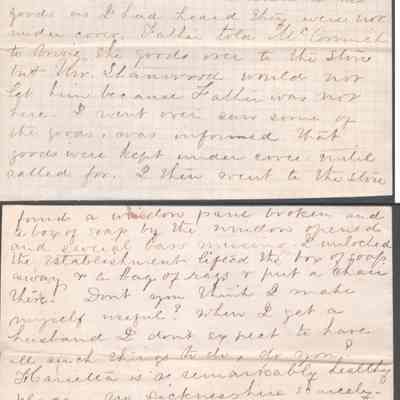 goods as I had heard they were not
under cover. Father told McCormick
to bring the goods over to the Store
but Mr. Stanwood would not
let him because Father was not
here. I went over saw some of
the goods, was informed that
goods were kept under cover until
called for. I then went to the Store
found a window pane broken and
a box of soap by the window opened
and several bars missing. I unlocked
the establishment lifted the box of soap
away & a bag of rags & put a chair
there. Don't you think I make
myself useful? When I get a
husband I don't expect to have
all such things to do, do you?
is remarkably healthy